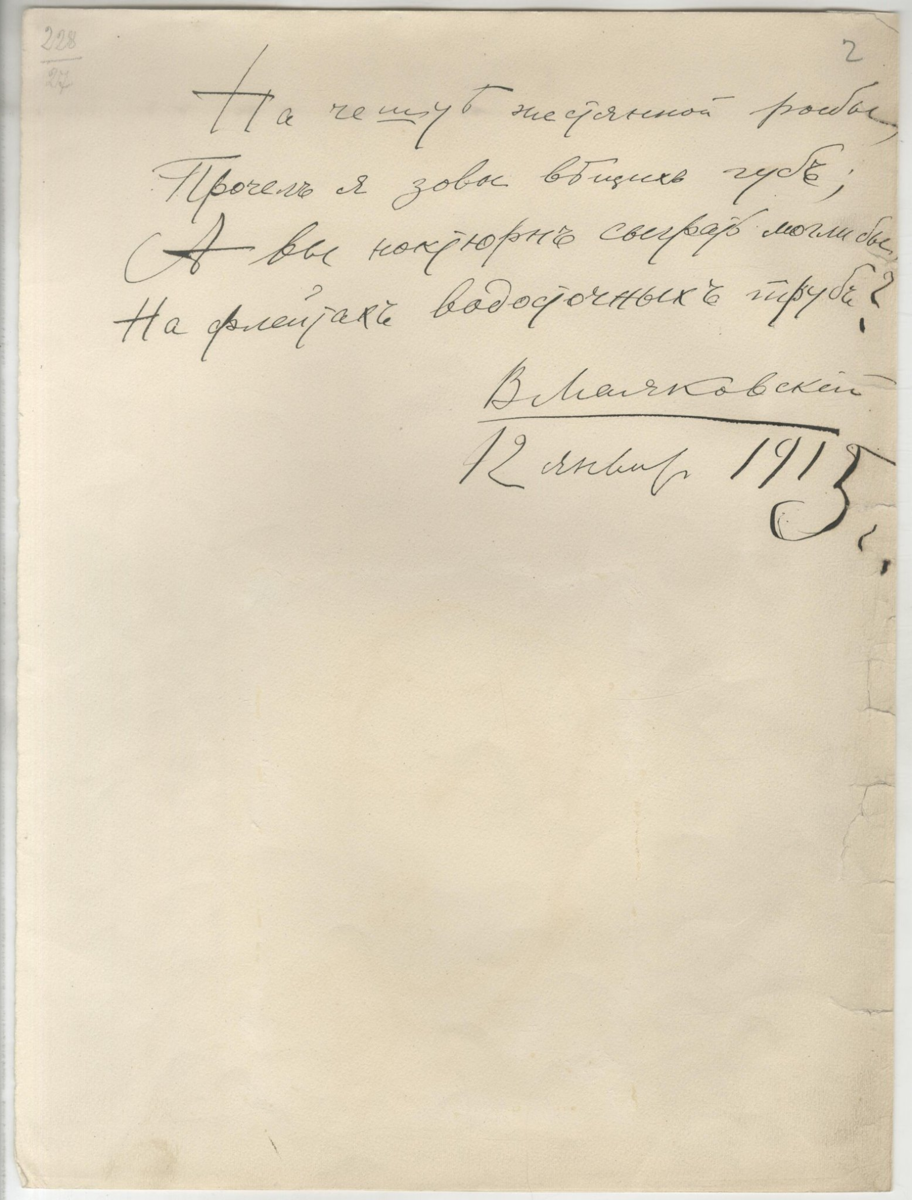 228
27
2
На чешуѣ жестянной рыбы,
Прочелъ я зовы вѣщихъ губъ;
А вы ноктюрнъ сыграть могли бы,
На флейтахъ водосточныхъ трубъ?
ВМаяковскій
12 январ 1915.